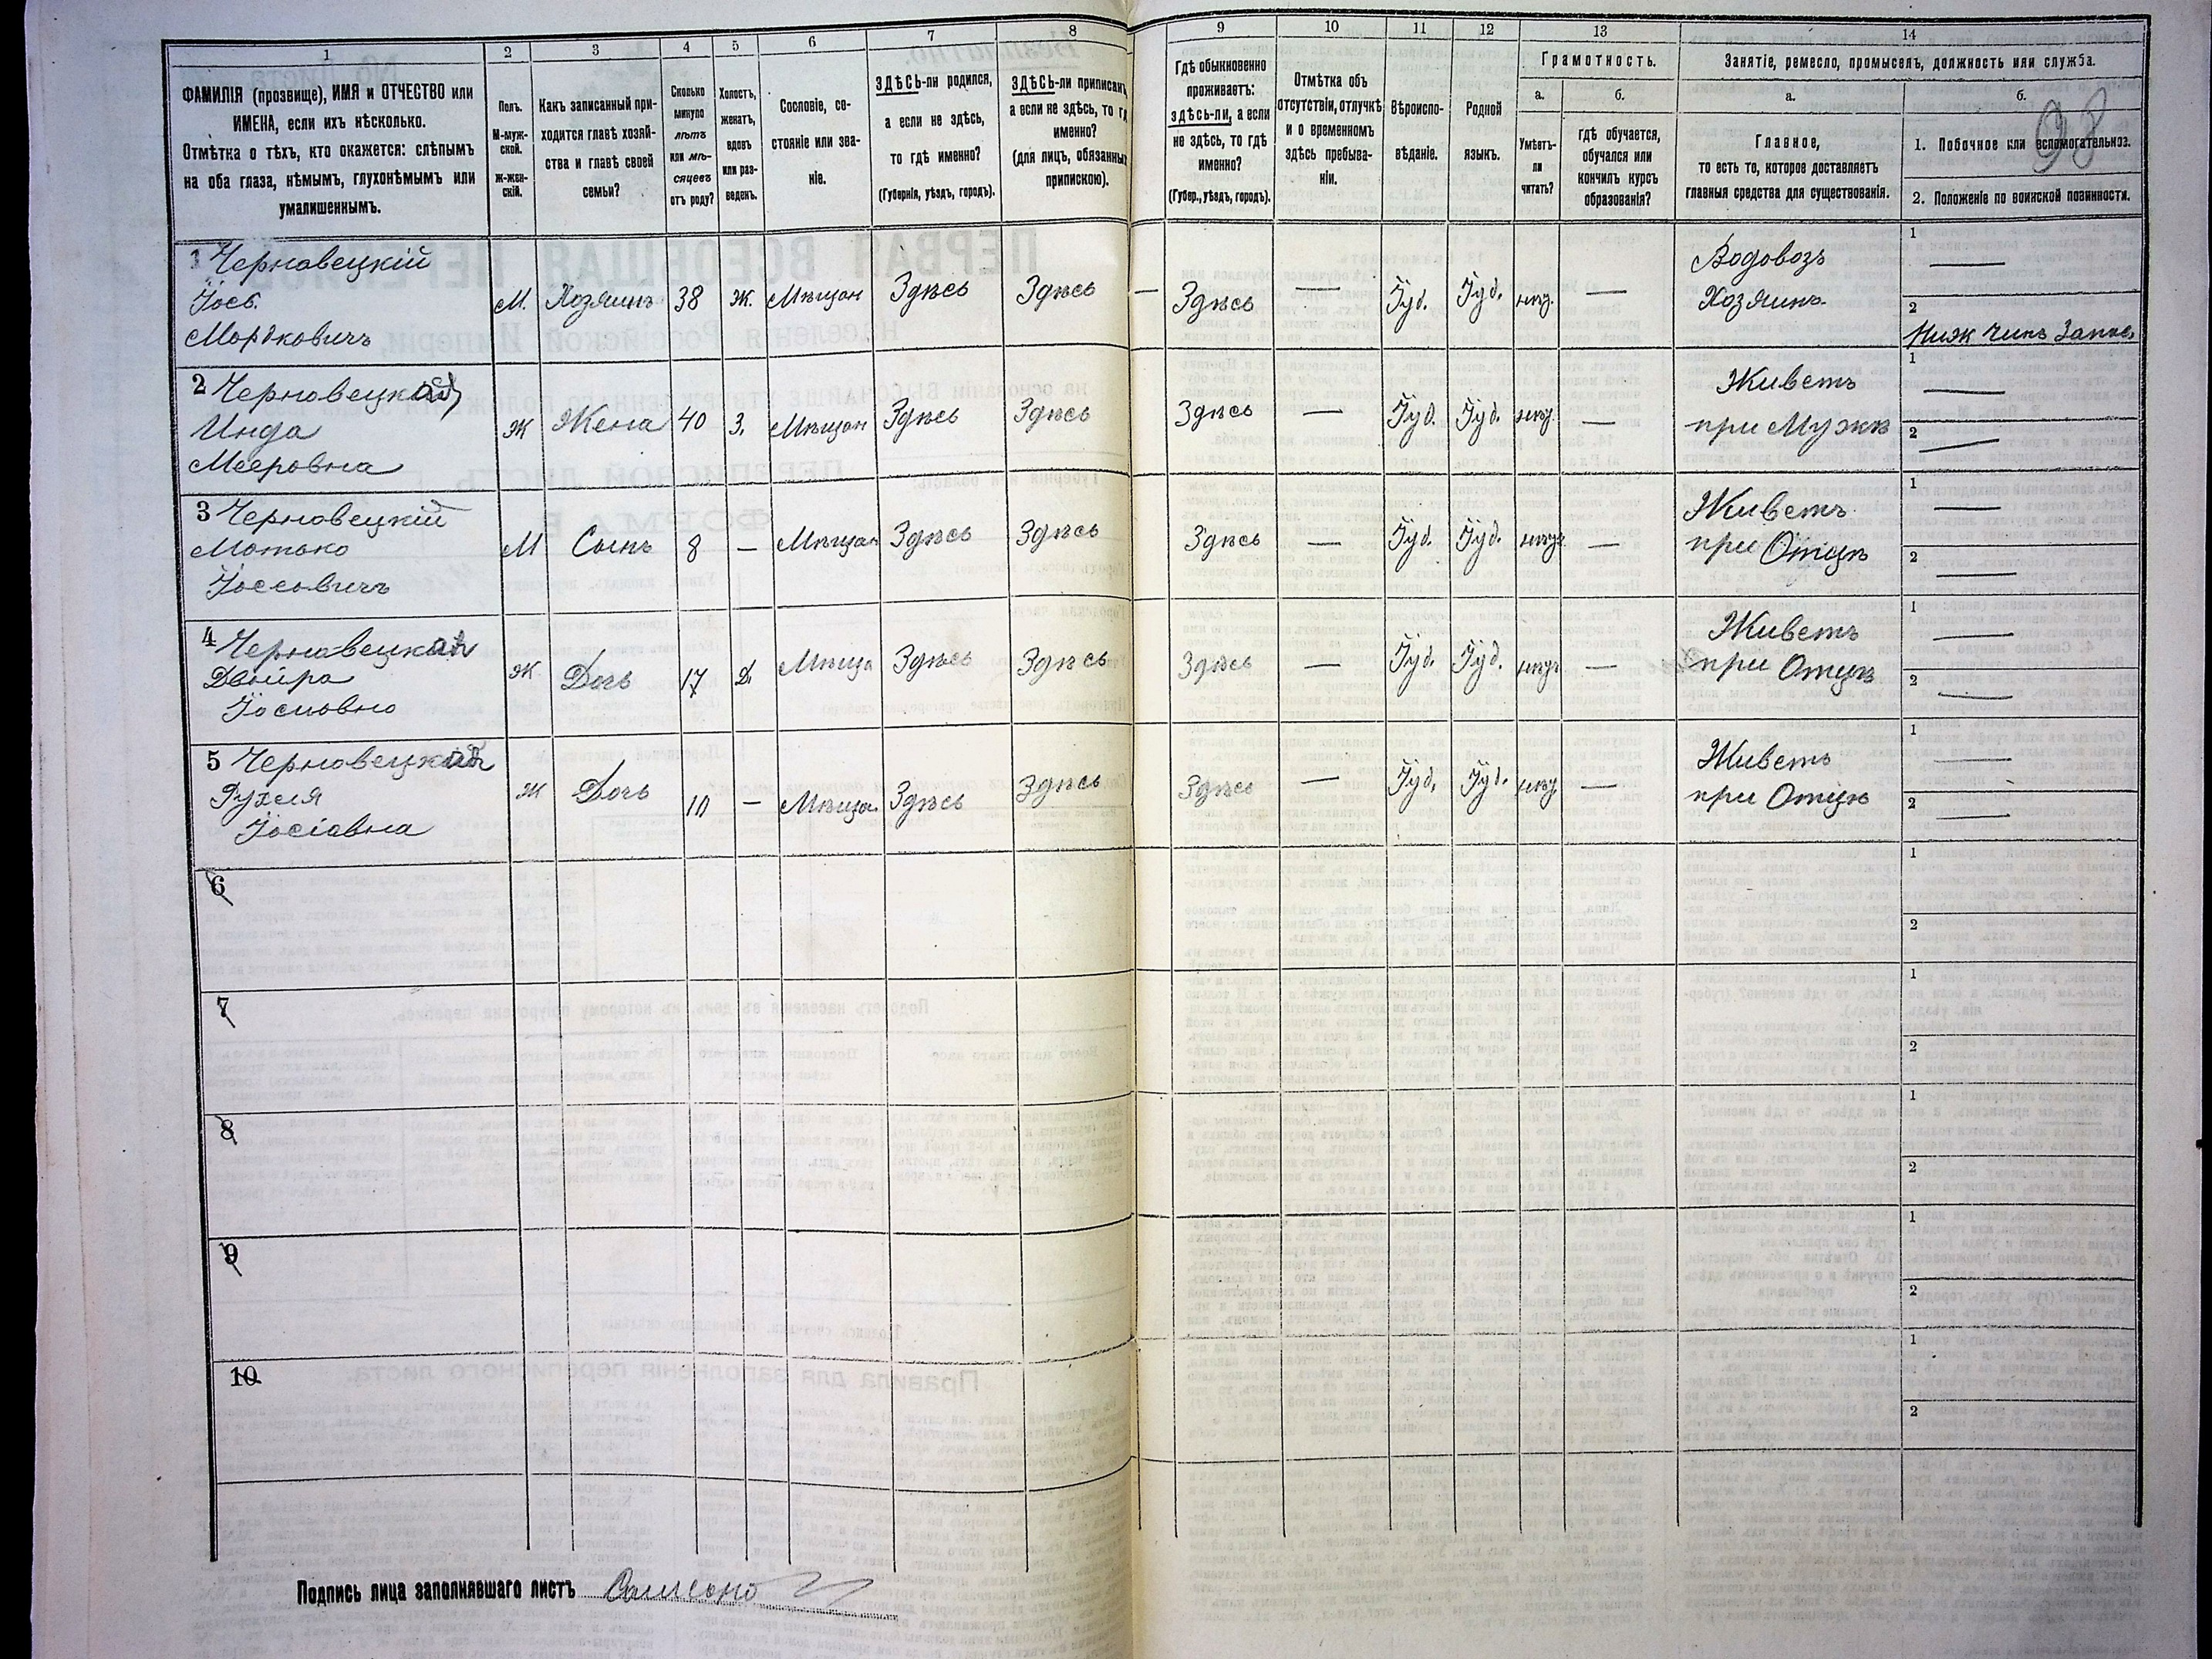 1 2 3 4 5 6 7 8 9 10 11 12 13 14
ФАМИЛІЯ (прозвище), ИМЯ и ОТЧЕСТВО или
ИМЕНА, если ихъ нѣсколько.
Отмѣтка о тѣхъ, кто окажется: слѣпымъ
на оба глаза, нѣмымъ, глухонѣмымъ или
умалишеннымъ.
Полъ.
М-муж-
ской.
ж-жен-
скій.
Какъ записанный при-
ходится главѣ хозяй-
ства и главѣ своей
семьи?
Сколько
минуло
лѣтъ
или мѣ-
сяцевъ
отъ роду?
Холостъ,
женатъ,
вдовъ
или раз-
веденъ.
Сословіе, со-
стояніе или зва-
ніе.
ЗДѢСЬ-ли родился,
а если не здѣсь,
то гдѣ именно?
(Губернія, уѣздъ, городъ).
ЗДѢСЬ-ли приписанъ,
а если не здѣсь, то гдѣ
именно?
(для лицъ, обязанныхъ
припискою).
Гдѣ обыкновенно
проживаетъ:
здѣсь-ли, а если
не здѣсь, то гдѣ
именно?
(Губер., уѣздъ, городъ).
Отмѣтка объ
отсутствіи, отлучкѣ
и о временномъ
здѣсь пребыва-
ніи.
Вѣроиспо-
вѣданіе.
Родной
языкъ.
Грамотность.
а.
Умѣетъ-
ли
читать?
б.
гдѣ обучается,
обучался или
кончилъ курсъ
образованія?
Занятіе, ремесло, промыселъ, должность или служба.
а.
Главное,
то есть то, которое доставляетъ
главныя средства для существованія.
б.
98
1. Побочное или вспомогательное.
2. Положеніе по воинской повинности.
1 Черновецкій
Іось
Мордковичъ
М. Хозяинъ 38 Ж. Мѣщан Здѣсь Здѣсь — Здѣсь — Іуд. Іуд. нѣт. —
Водовозъ
Хозяинъ
1 —
2 Ниж чинъ Запас.
2 Черновецкая
Инда
Мееровна
Ж Жена 40 З. Мѣщан Здѣсь Здѣсь Здѣсь — Іуд. Іуд. нѣт. —
Живетъ
при Мужѣ
1 —
2 —
3 Черновецкій
Мотько
Іосіовичъ
М Сынъ 8 — Мѣщан Здѣсь Здѣсь Здѣсь — Іуд. Іуд. нѣт —
Живетъ
при Отцѣ
1 —
2 —
4 Черновецкая
Двойра
Іосиовна
Ж Дочь 17 Д. Мѣща Здѣсь Здѣсь Здѣсь — Іуд. Іуд. нѣт —
Живетъ
при Отцѣ
1 —
2 —
5 Черновецкая
Рухля
Іосіовна
Ж Дочь 10 — Мѣща. Здѣсь Здѣсь Здѣсь — Іуд. Іуд. нѣт —
Живетъ
при Отцѣ
1 —
2 —
6
1
2
7
1
2
8
1
2
9
1
2
10
1
2
Подпись лица заполнявшаго листъ